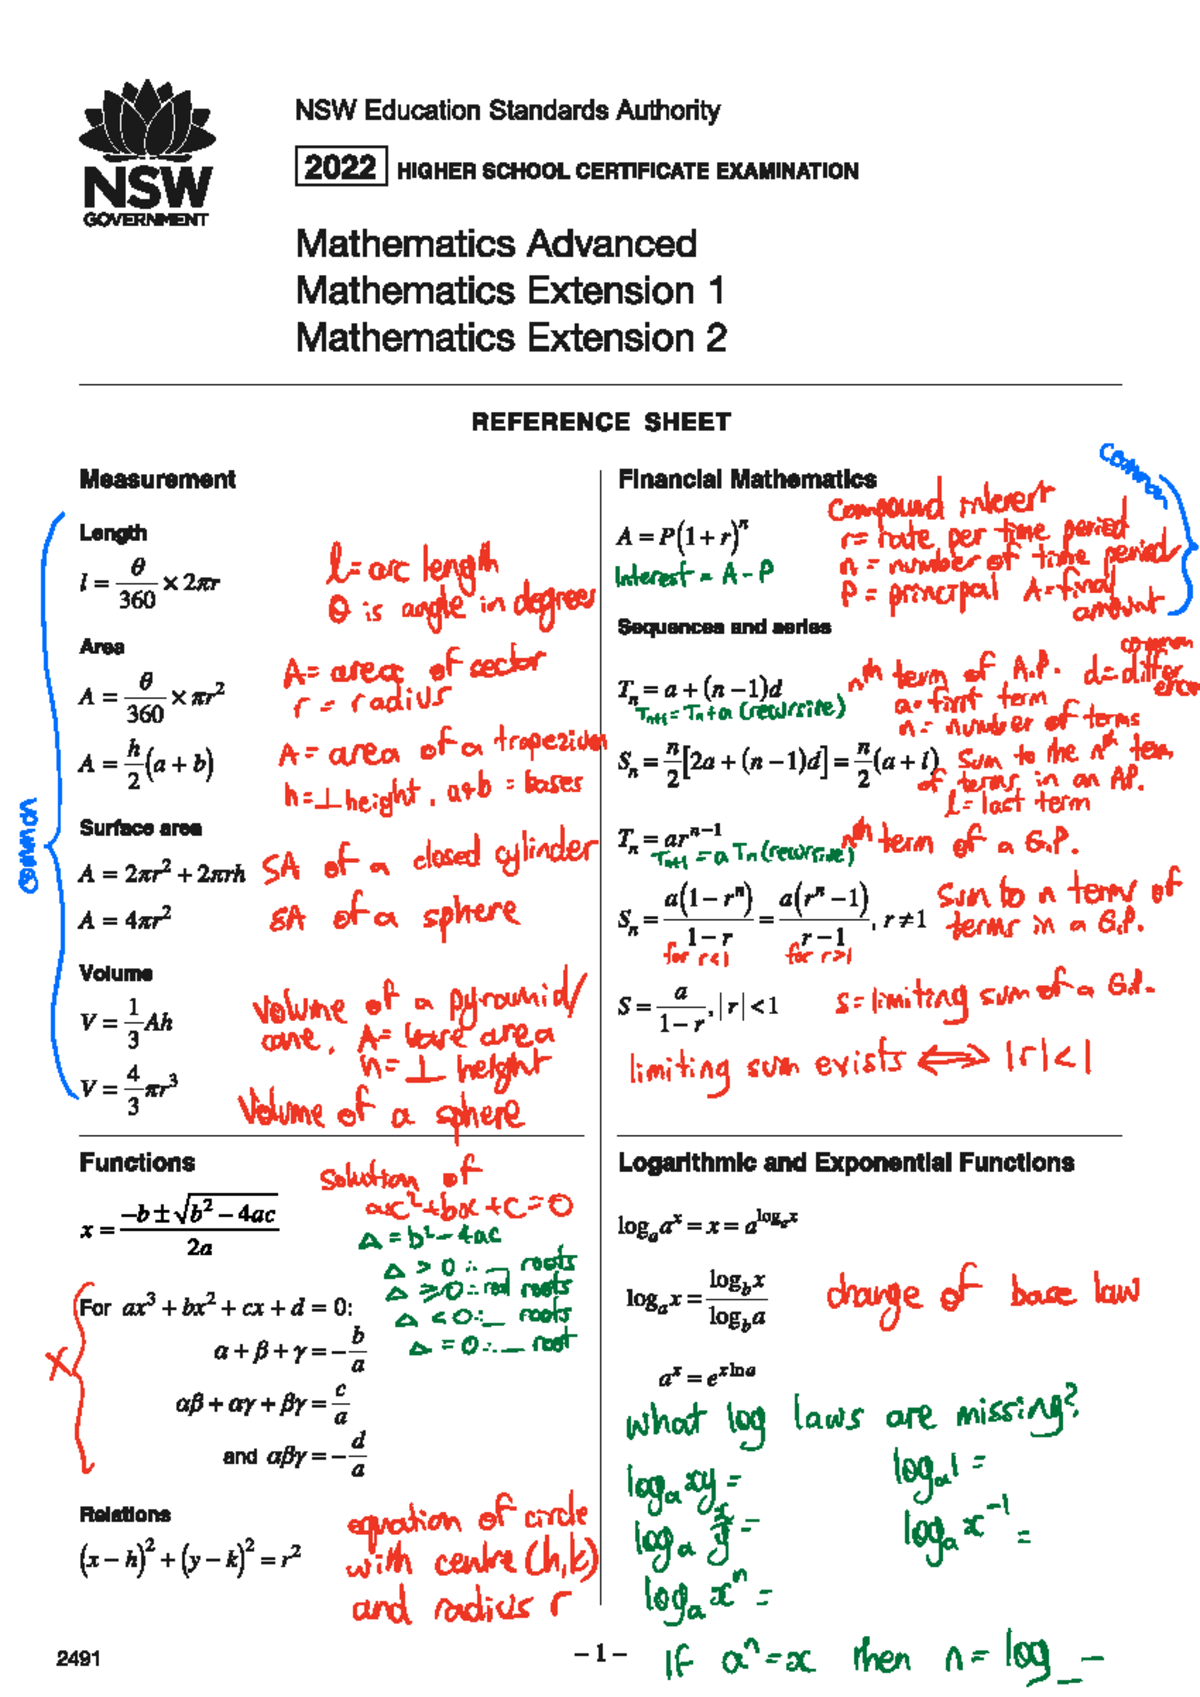 NSW
GOVERNMENT
NSW Education Standards Authority
2022 HIGHER SCHOOL CERTIFICATE EXAMINATION
Mathematics Advanced
Mathematics Extension 1
Mathematics Extension 2
REFERENCE SHEET
Measurement
common
Length
l = θ/360 × 2πr
l = arc length
θ is angle in degrees
Area
A = θ/360 × πr²
A = area of sector
r = radius
A = h/2 (a + b)
A = area of a trapezium
h = ⊥ height, a+b = bases
Surface area
A = 2πr² + 2πrh
SA of a closed cylinder
A = 4πr²
SA of a sphere
Volume
V = 1/3 Ah
Volume of a pyramid/
cone, A = base area
h = ⊥ height
V = 4/3 πr³
Volume of a sphere
Financial Mathematics
common
A = P(1 + r)ⁿ
Interest = A - P
Compound interest
r = rate per time period
n = number of time period
P = principal A = final
amount
Sequences and series
Tₙ = a + (n − 1)d
Tₙ₊₁ = Tₙ + a (recursive)
nᵗʰ term of A.P. d = common
differ
ence
a = first term
n = number of terms
Sₙ = n/2 [2a + (n − 1)d] = n/2 (a + l)
Sum to the nᵗʰ term
of terms in an AP.
l = last term
Tₙ = arⁿ⁻¹
Tₙ₊₁ = a Tₙ (recursive)
nᵗʰ term of a G.P.
Sₙ = a(1 − rⁿ)/(1 − r) = a(rⁿ − 1)/(r − 1), r ≠ 1
for r<1 for r>1
Sum to n terms of
terms in a G.P.
S = a/(1 − r), |r| < 1
S = limiting sum of a G.P.
limiting sum exists ⟺ |r| < 1
Functions
x = (−b ± √(b² − 4ac))/2a
Solution of
ax² + bx + c = 0
Δ = b² - 4ac
Δ > 0 ∴ __ roots
Δ ≥ 0 ∴ real roots
Δ < 0 ∴ __ roots
Δ = 0 ∴ __ root
X
For ax³ + bx² + cx + d = 0:
α + β + γ = −b/a
αβ + αγ + βγ = c/a
and αβγ = −d/a
Relations
(x − h)² + (y − k)² = r²
equation of circle
with centre (h,k)
and radius r
Logarithmic and Exponential Functions
logₐ aˣ = x = a^(logₐ x)
logₐ x = log_b x / log_b a
change of base law
aˣ = e^(x ln a)
what log laws are missing?
logₐ xy =
logₐ 1 =
logₐ x/y =
logₐ x⁻¹ =
logₐ xⁿ =
If aⁿ = x then n = log _ _
2491
– 1 –